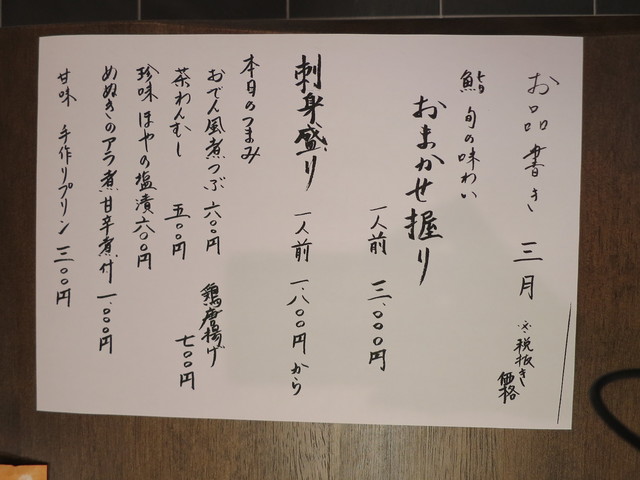 お品書き 三月 ※税抜き価格
鮨 旬の味わい
おまかせ握り
一人前 三、〇〇〇円
刺身盛り 一人前 一、八〇〇円から
本日のつまみ
おでん風煮つぶ 六〇〇円
鶏唐揚げ 七〇〇円
茶わんむし 五〇〇円
珍味 ほやの塩漬 六〇〇円
めぬきのアラ煮 甘辛煮付 一、〇〇〇円
甘味 手作りプリン 三〇〇円